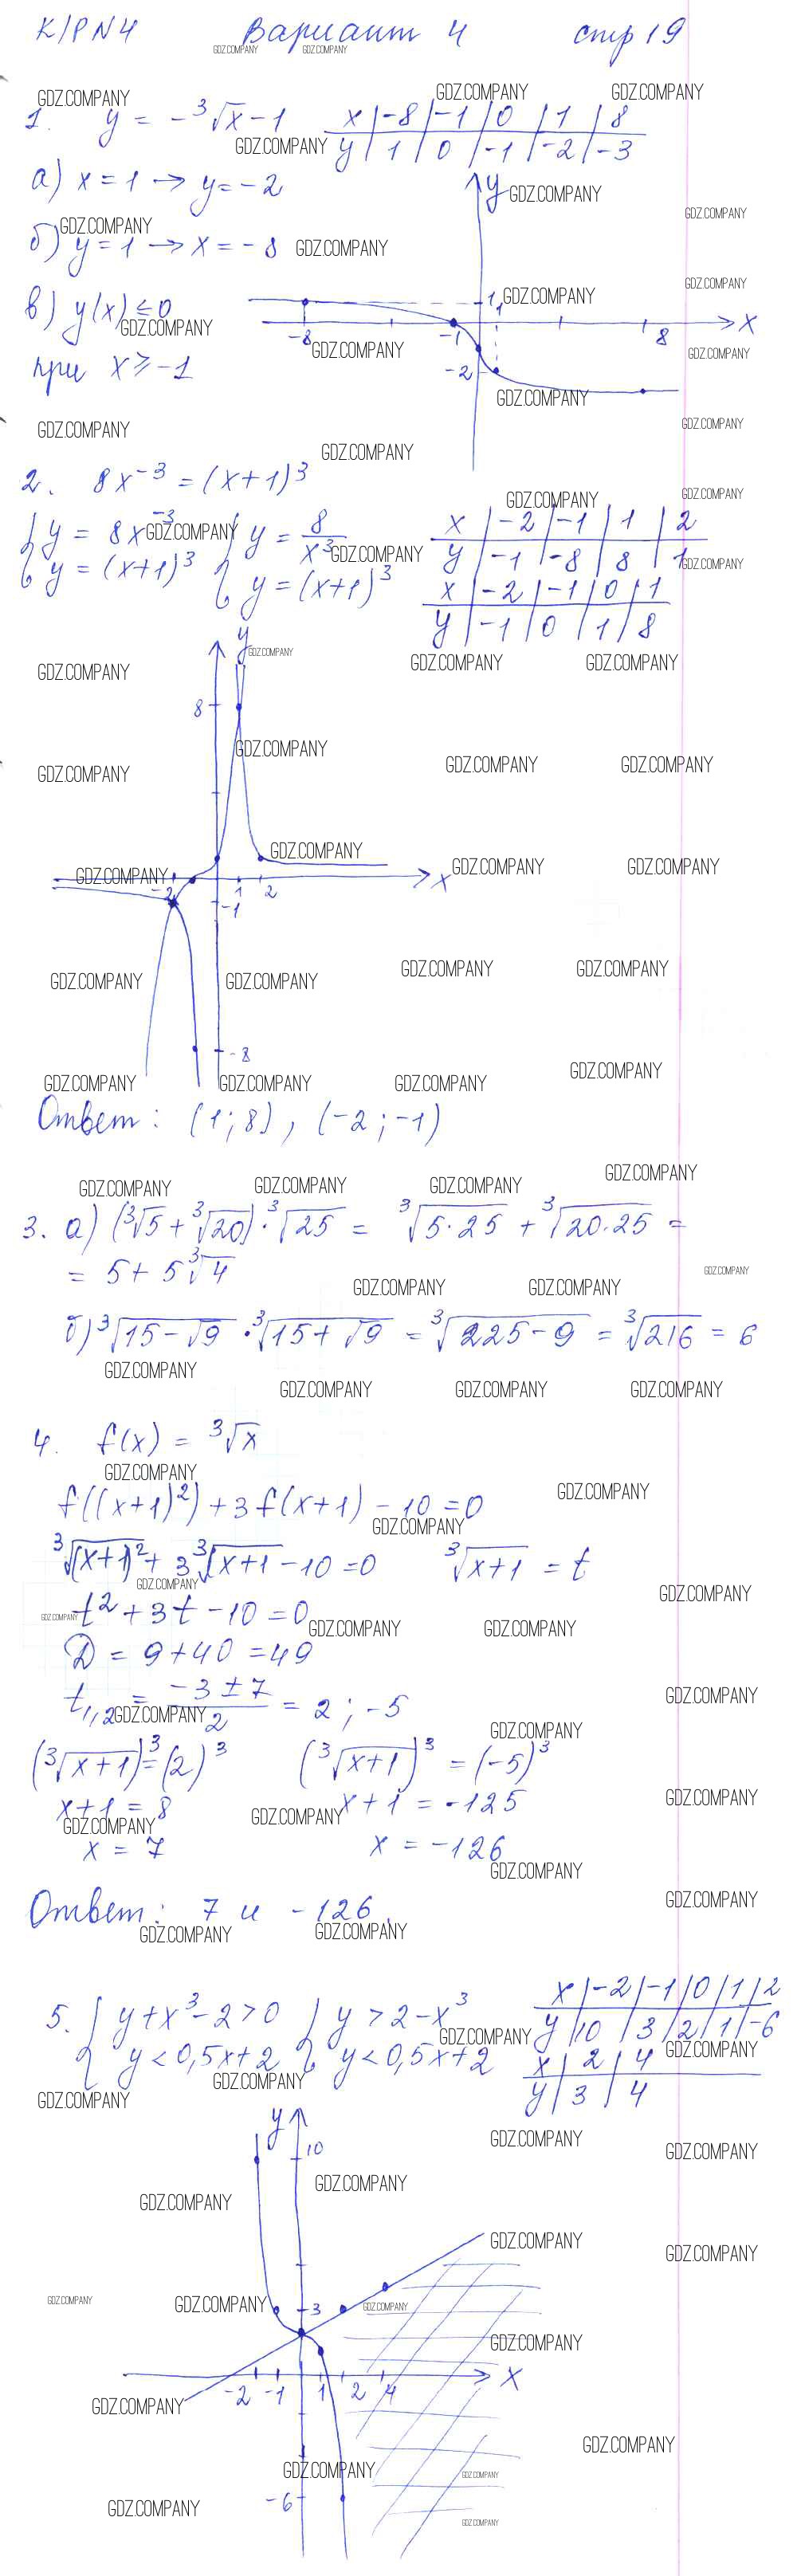 К/Р N4 Вариант 4 стр 19
1. y = -³√x - 1
x | -8 | -1 | 0 | 1 | 8
y | 1 | 0 | -1 | -2 | -3
а) x = 1 → y = -2
б) y = 1 → x = -8
в) y(x) ≤ 0
при x ≥ -1
y
1
1
-8
-1
8
x
-2
2. 8x⁻³ = (x+1)³
{ y = 8x⁻³ { y = 8/x³
{ y = (x+1)³ { y = (x+1)³
x | -2 | -1 | 1 | 2
y | -1 | -8 | 8 | 1
x | -2 | -1 | 0 | 1
y | -1 | 0 | 1 | 8
y
8
-2
1
2
x
-1
-8
Ответ: (1; 8), (-2; -1)
3. а) (³√5 + ³√20) · ³√25 = ³√5·25 + ³√20·25 =
= 5 + 5³√4
б) ³√15-√9 · ³√15+√9 = ³√225-9 = ³√216 = 6
4. f(x) = ³√x
f((x+1)²) + 3f(x+1) - 10 = 0
³√(x+1)² + 3³√x+1 - 10 = 0 ³√x+1 = t
t² + 3t - 10 = 0
D = 9 + 40 = 49
t₁,₂ = (-3 ± 7)/2 = 2; -5
(³√x+1)³ = (2)³ (³√x+1)³ = (-5)³
x+1 = 8 x+1 = -125
x = 7 x = -126
Ответ: 7 и -126.
5. { y + x³ - 2 > 0 { y > 2 - x³
{ y < 0,5x + 2 { y < 0,5x + 2
x | -2 | -1 | 0 | 1 | 2
y | 10 | 3 | 2 | 1 | -6
x | 2 | 4
y | 3 | 4
y
10
3
-2
-1
1
2
4
x
-6
GDZ.COMPANY